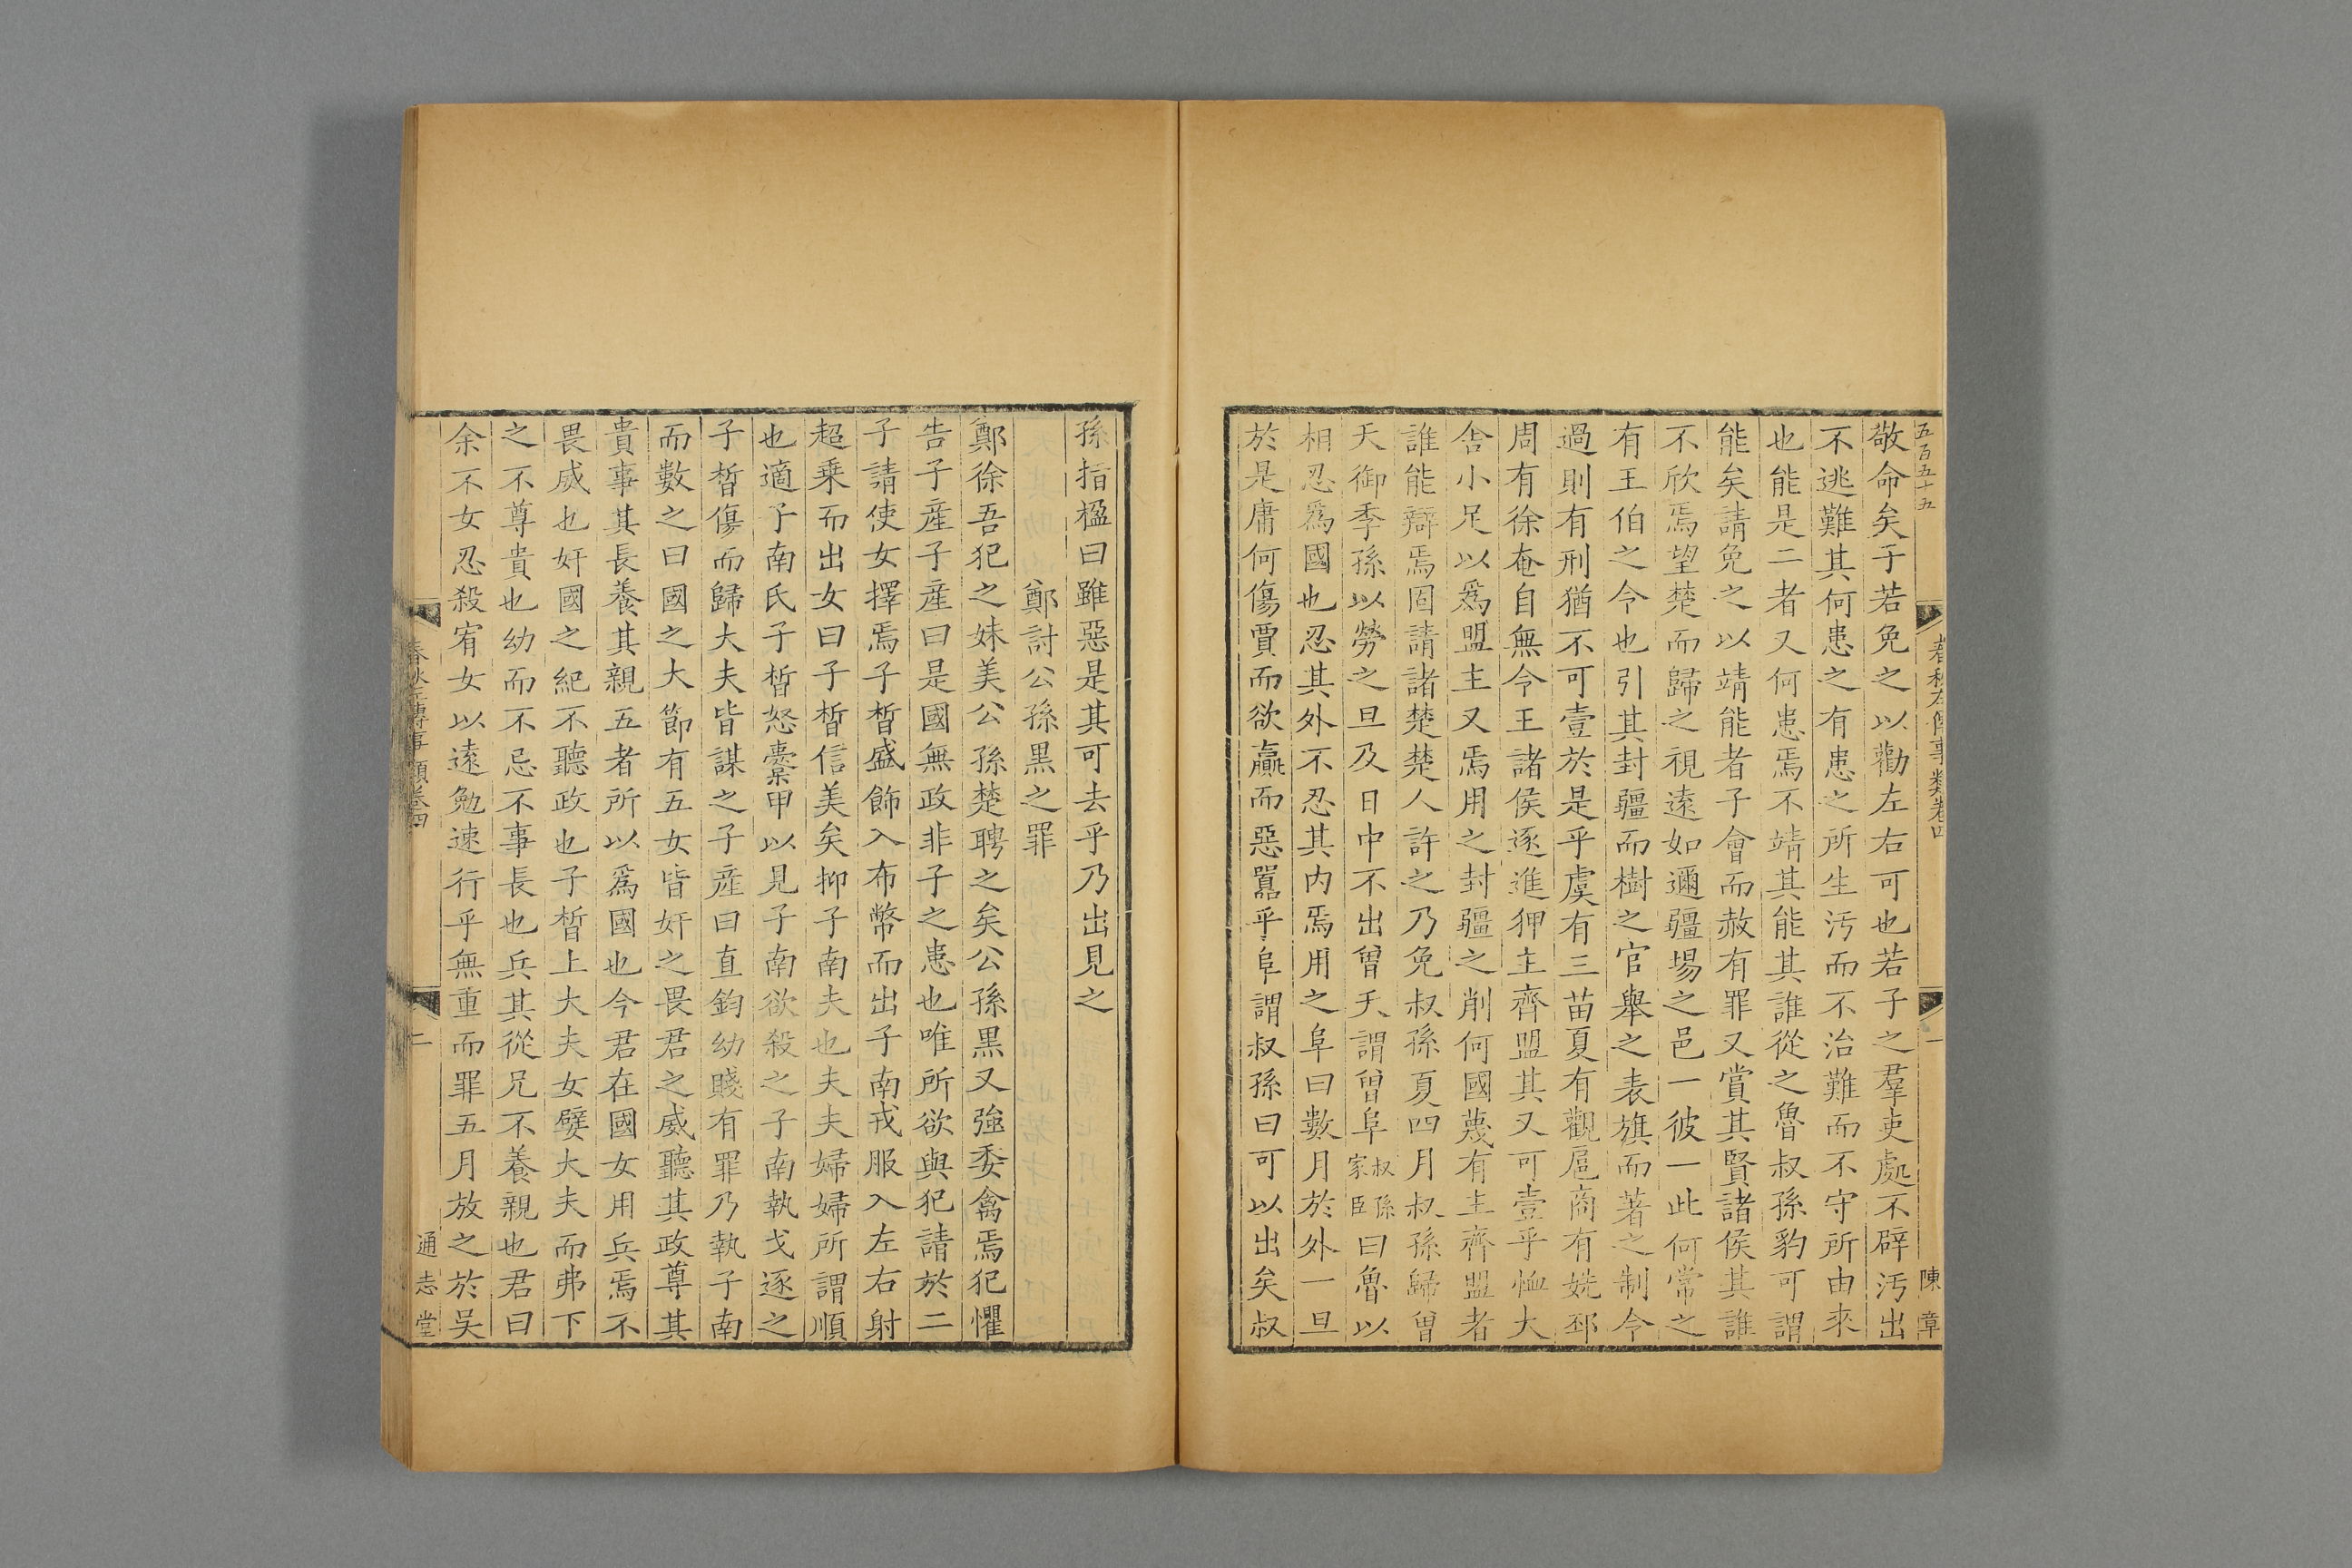 五百五十五
春秋左傳事類卷四
一
陳章
敬命矣子若免之以勸左右可也若子之羣吏處不辟汚出
不逃難其何患之有患之所生汚而不治難而不守所由來
也能是二者又何患焉不靖其能其誰從之魯叔孫豹可謂
能矣請免之以靖能者子會而赦有罪又賞其賢諸侯其誰
不欣焉望楚而歸之視遠如邇疆埸之邑一彼一此何常之
有王伯之令也引其封疆而樹之官舉之表旗而著之制令
過則有刑猶不可壹於是乎虞有三苗夏有觀扈商有姺邳
周有徐奄自無令王諸侯逐進狎主齊盟其又可壹乎恤大
舍小足以爲盟主又焉用之封疆之削何國蔑有主齊盟者
誰能辯焉固請諸楚楚人許之乃免叔孫夏四月叔孫歸曾
夭御季孫以勞之旦及日中不出曾夭謂曾阜叔孫家臣曰魯以
相忍爲國也忍其外不忍其内焉用之阜曰數月於外一旦
於是庸何傷賈而欲贏而惡囂乎阜謂叔孫曰可以出矣叔
孫指楹曰雖惡是其可去乎乃出見之
鄭討公孫黑之罪
鄭徐吾犯之妹美公孫楚聘之矣公孫黑又強委禽焉犯懼
告子産子産曰是國無政非子之患也唯所欲與犯請於二
子請使女擇焉子晳盛飾入布幣而出子南戎服入左右射
超乘而出女曰子晳信美矣抑子南夫也夫夫婦婦所謂順
也適子南氏子晳怒櫜甲以見子南欲殺之子南執戈逐之
子晳傷而歸大夫皆謀之子産曰直鈞幼賤有罪乃執子南
而數之曰國之大節有五女皆奸之畏君之威聽其政尊其
貴事其長養其親五者所以爲國也今君在國女用兵焉不
畏威也奸國之紀不聽政也子晳上大夫女嬖大夫而弗下
之不尊貴也幼而不忌不事長也兵其從兄不養親也君曰
余不女忍殺宥女以遠勉速行乎無重而罪五月放之於吴
春秋左傳事類卷四
二
通志堂